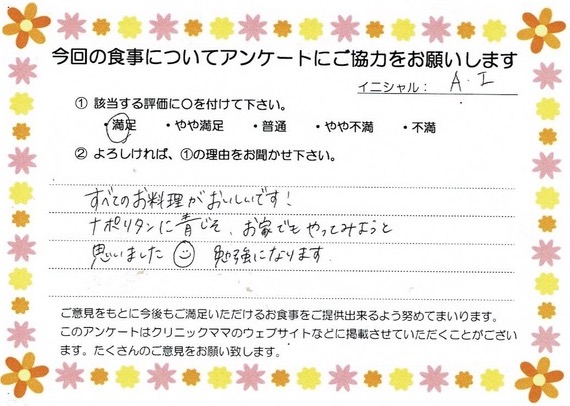 今回の食事についてアンケートにご協力をお願いします
イニシャル： A．I
① 該当する評価に○を付けて下さい。
・満足 ・やや満足 ・普通 ・やや不満 ・不満
② よろしければ、①の理由をお聞かせ下さい。
すべてのお料理がおいしいです！
ナポリタンに青じそ、お家でもやってみようと
思いました 勉強になります.
ご意見をもとに今後もご満足いただけるお食事をご提供出来るよう努めてまいります。
このアンケートはクリニックママのウェブサイトなどに掲載させていただくことがござい
ます。たくさんのご意見をお願い致します。